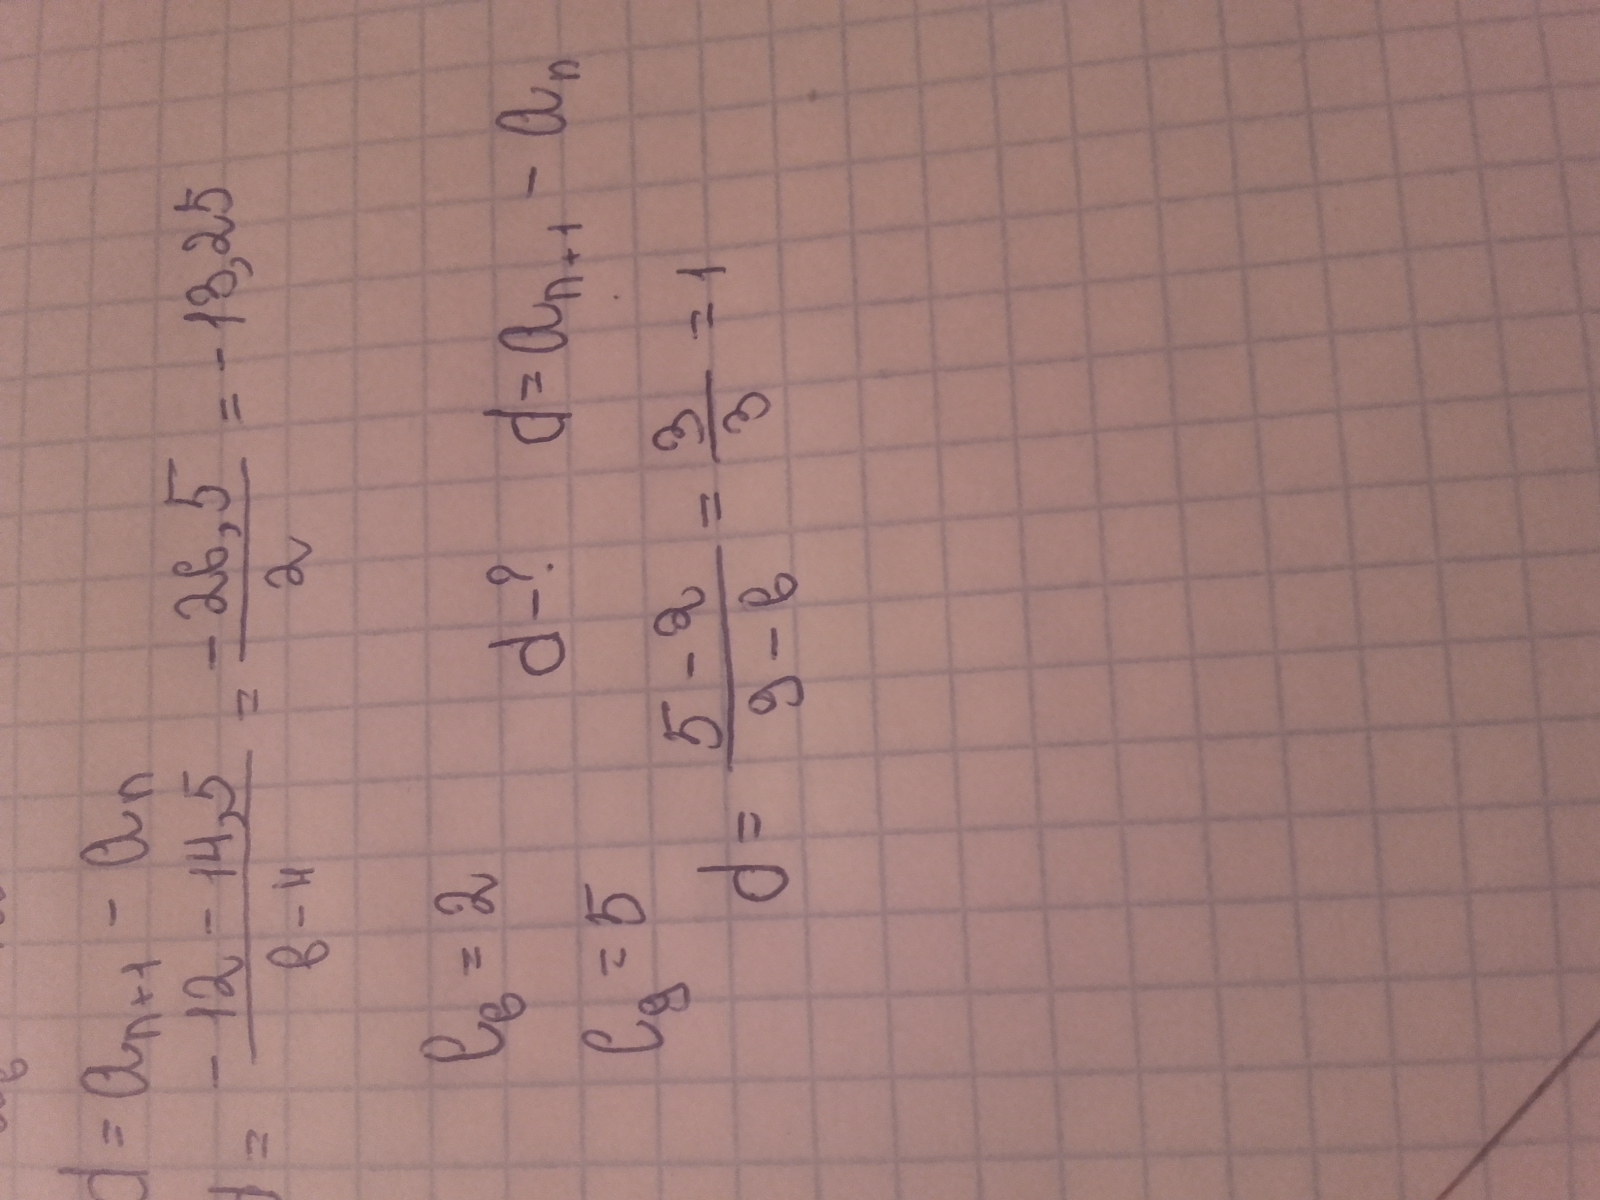 d = a_{n+1} - a_n
= \frac{-12-14,5}{6-4} = \frac{-26,5}{2} = -13,25
C_6 = 2 d-? d = a_{n+1} - a_n
C_9 = 5
d = \frac{5-2}{9-6} = \frac{3}{3} = 1